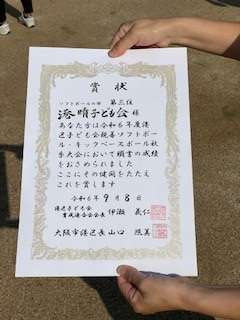 賞状
ソフトボールの部 第三位
港晴子ども会 様
あなた方は令和6年度港
区子ども会親善ソフトボー
ル・キックベースボール秋
季大会において頭書の成績
をおさめられました
ここにその健闘をたたえ
これを賞します
令和6年 9月 8日
港区子ども会
育成連合会会長 伊瀬 義仁
大阪市港区長 山口 照美